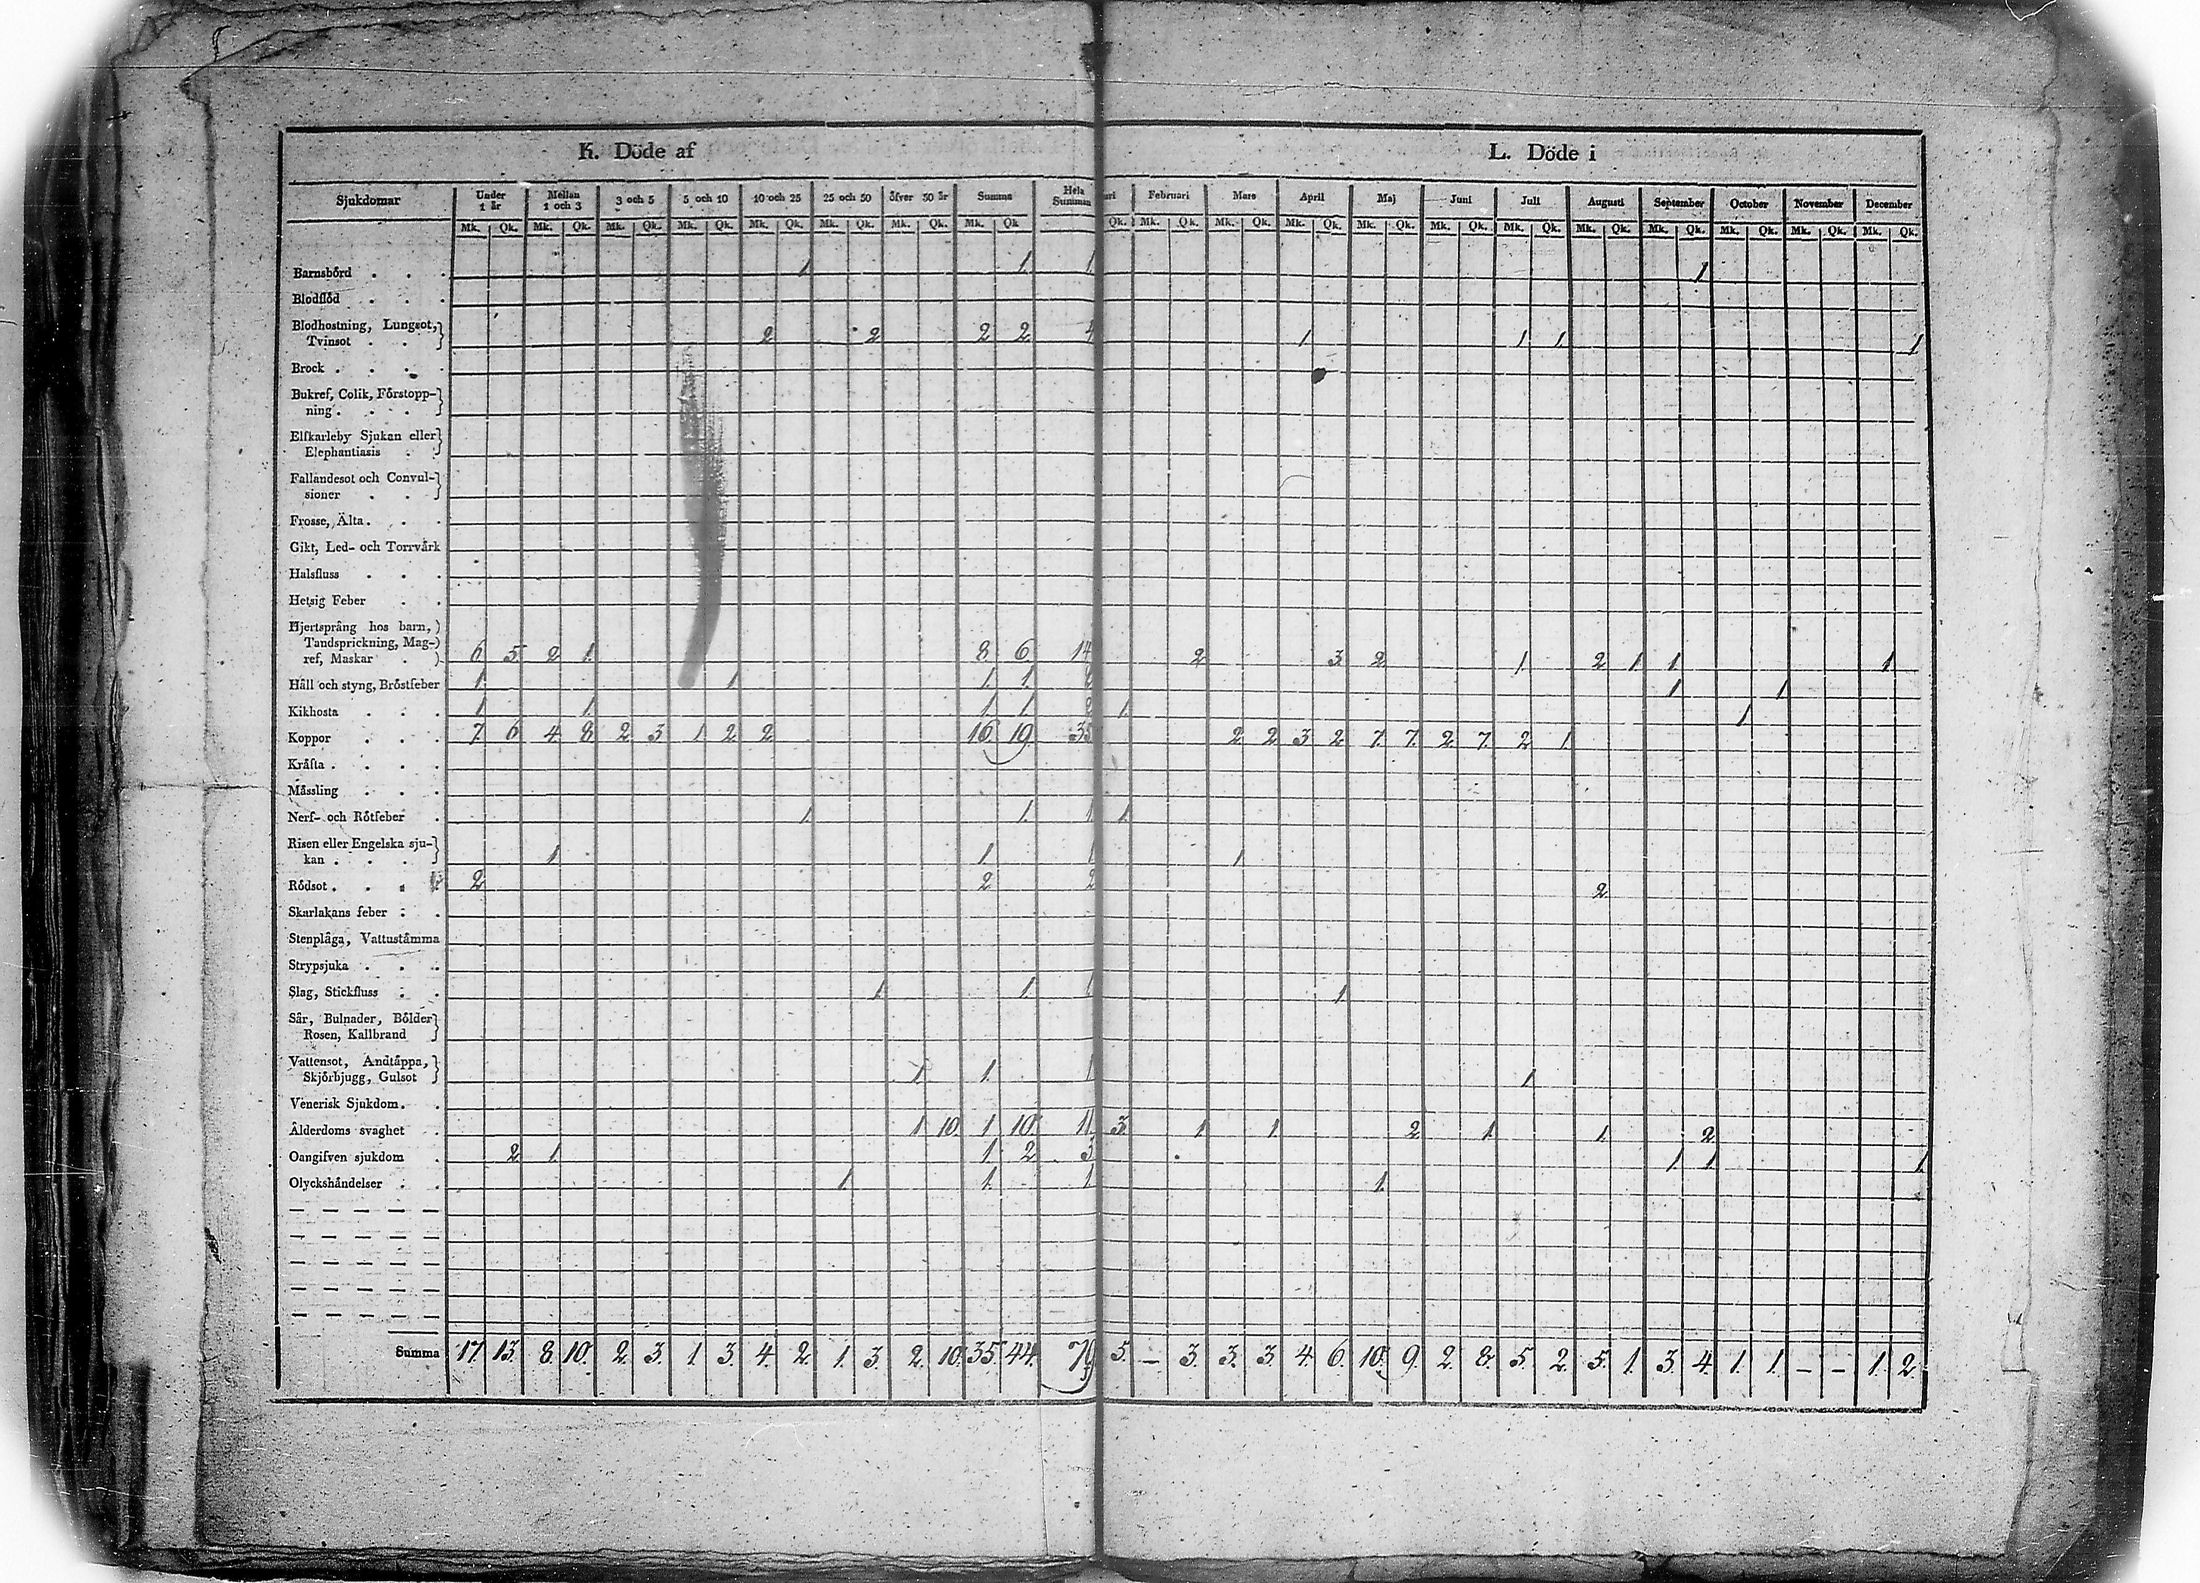 K. Döde af L. Döde i
Sjukdomar Under 1 år Mellan 1 och 3 3 och 5 5 och 10 10 och 25 25 och 50 öfver 50 år Summa Hela Summan Februari Mars April Maj Juni Juli Augusti September October November December
Mk. Qk. Mk. Qk. Mk. Qk. Mk. Qk. Mk. Qk. Mk. Qk. Mk. Qk. Mk. Qk Qk. Mk. Qk. Mk. Qk. Mk. Qk. Mk. Qk. Mk. Qk. Mk. Qk. Mk. Qk. Mk. Qk. Mk. Qk. Mk. Qk. Mk. Qk.
Barnsbörd . . . 1 1. 1 1
Blodflöd . . .
Blodhostning, Lungsot,
Tvinsot . . 2 2 2 2 1 1 1 1
Brock . . . .
Bukref, Colik, Förstopp-
ning . . . .
Elfkarleby Sjukan eller
Elephantiasis . .
Fallandesot och Convul-
sioner . . .
Frosse, Älta . . .
Gikt, Led- och Torrvärk
Halsfluss . . .
Hetsig Feber . .
Hjertsprång hos barn,
Tandsprickning, Mag-
ref, Maskar . 6 5 2 1 8 6 14 2 3 2 1 2 1 1 1
Håll och styng, Bröstfeber 1. 1 1. 1. 1 1
Kikhosta . . . 1 1. 1 1 2 1. 1
Koppor . . . 7. 6 4 8 2 3 1 2 2 16 19 35 2 2 3 2 7. 7. 2 7. 2 1.
Kräfta . . . .
Mässling . . .
Nerf- och Rötfeber . 1 1. 1 1.
Risen eller Engelska sju-
kan . . . . 1 1 1 1
Rödsot . . . . 2 2 2 2
Skarlakans feber . .
Stenplåga, Vattustämma
Strypsjuka . . .
Slag, Stickfluss . . 1 1 1 1
Sår, Bulnader, Bölder
Rosen, Kallbrand
Vattensot, Andtäppa,
Skjörbjugg, Gulsot 1 1. 1 1
Venerisk Sjukdom . .
Ålderdoms svaghet . 1 10. 1 10. 11 3. 1 1 2 1. 1. 2
Oangifven sjukdom . 2 1. 1. 2 3 1 1 1
Olyckshändelser . . 1 1. 1 1.
Summa 17. 13. 8. 10. 2. 3. 1. 3. 4. 2. 1. 3. 2. 10. 35. 44. 79 5. – 3. 3. 3. 4. 6. 10. 9. 2. 8. 5. 2. 5. 1. 3. 4. 1. 1. – – 1. 2.